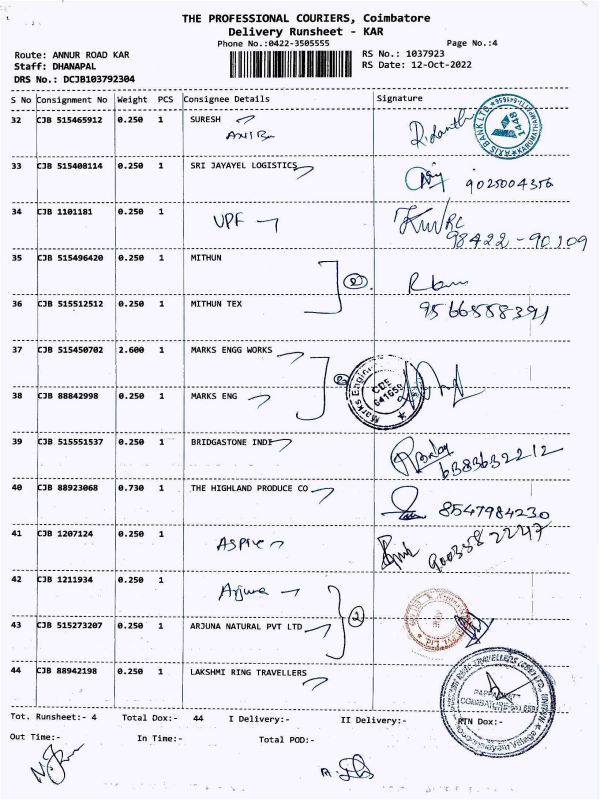 THE PROFESSIONAL COURIERS, Coimbatore
Delivery Runsheet - KAR
Phone No.:0422-3505555
Page No.:4
Route: ANNUR ROAD KAR
RS No.: 1037923
Staff: DHANAPAL
RS Date: 12-Oct-2022
DRS No.: DCJB103792304
S No Consignment No Weight PCS Consignee Details Signature
32 CJB 515465912 0.250 1 SURESH
33 CJB 515408114 0.250 1 SRI JAYAYEL LOGISTICS
9025004356
34 CJB 1101181 0.250 1
UPF
98422-90109
35 CJB 515496420 0.250 1 MITHUN
36 CJB 515512512 0.250 1 MITHUN TEX
9566558391
37 CJB 515450702 2.600 1 MARKS ENGG WORKS
38 CJB 88842998 0.250 1 MARKS ENG
39 CJB 515551537 0.250 1 BRIDGASTONE INDI
6383632212
40 CJB 88923068 0.730 1 THE HIGHLAND PRODUCE CO
8547984230
41 CJB 1207124 0.250 1
Aspire
42 CJB 1211934 0.250 1
Arjuna
2
43 CJB 515273207 0.250 1 ARJUNA NATURAL PVT LTD
44 CJB 88942198 0.250 1 LAKSHMI RING TRAVELLERS
Tot. Runsheet:- 4 Total Dox:- 44 I Delivery:- II Delivery:- RTN Dox:-
Out Time:- In Time:- Total POD:-